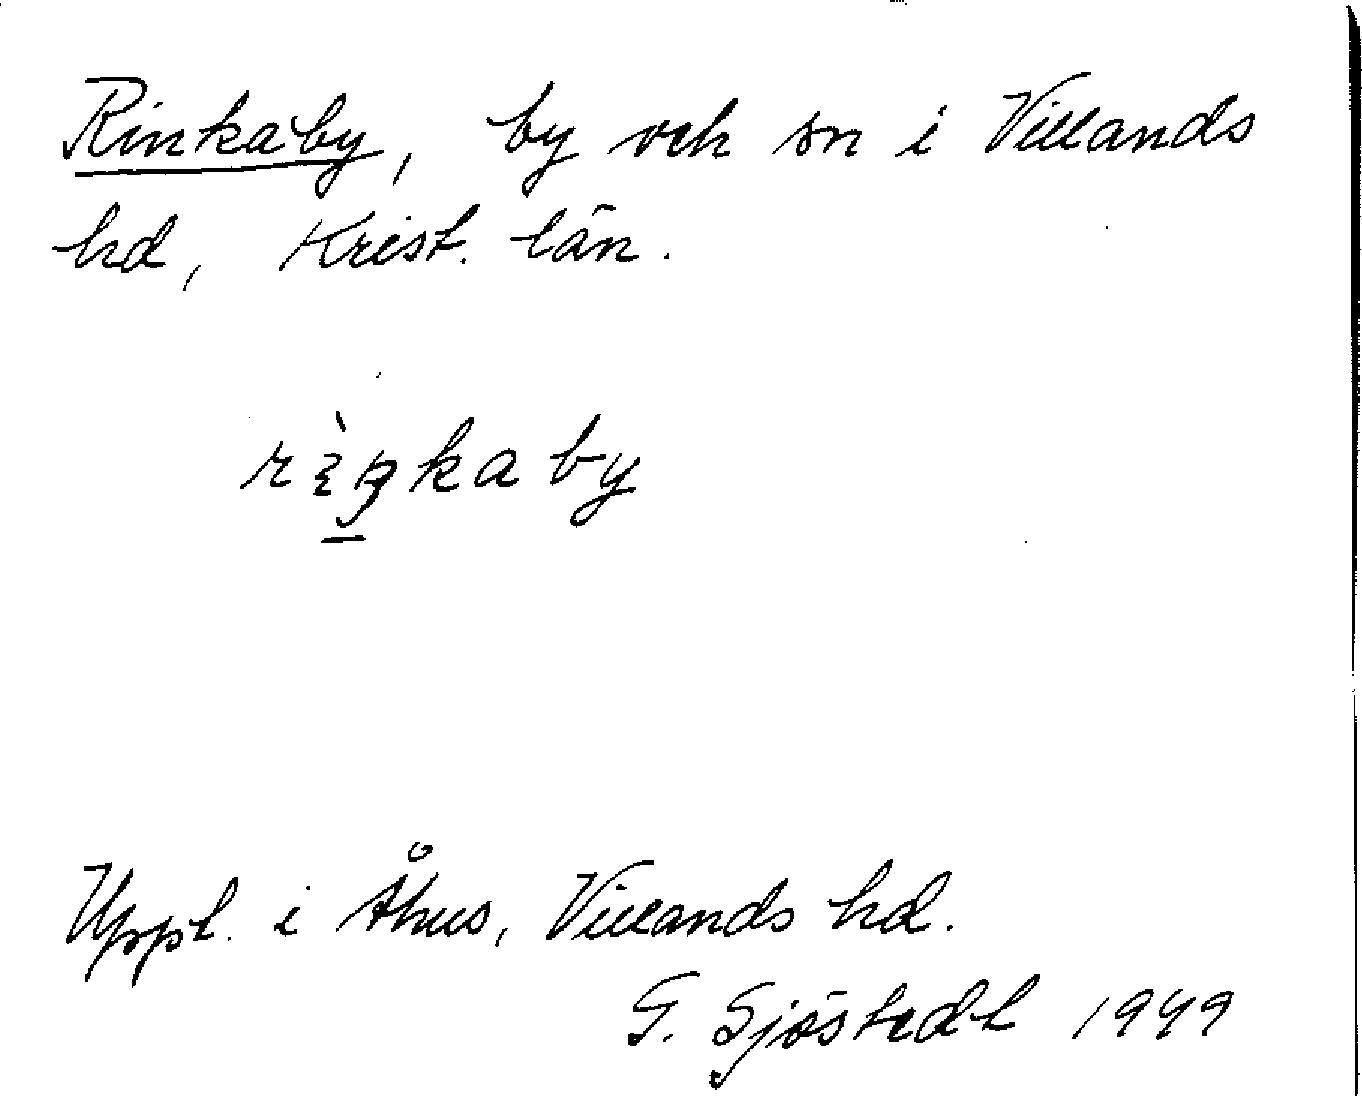 Rinkaby, by och sn i Villands
hd, Krist. län.
Uppt. i Åhus, Villands hd.
G. Sjöstedt 1949